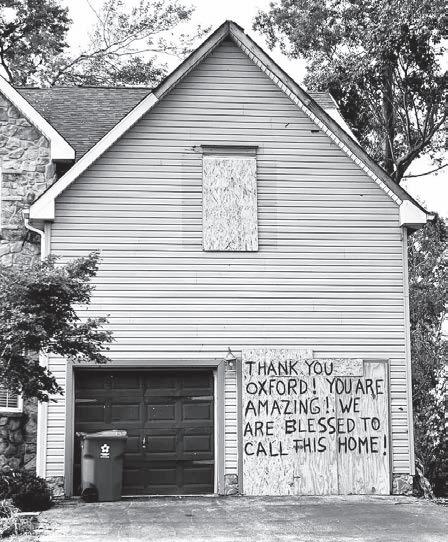 THANK YOU
OXFORD! YOU ARE
AMAZING! WE
ARE BLESSED TO
CALL THIS HOME!